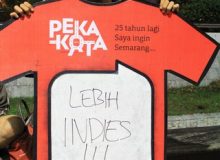 PEKA
KOTA
25 tahun lagi
Saya ingin
Semarang...
LEBIH
INDIES
!!!